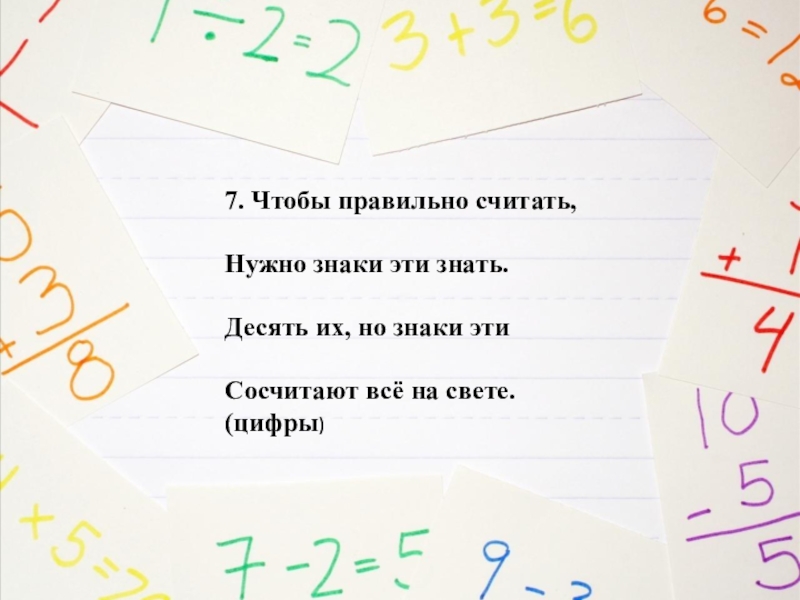 1 ÷ 2 = 2
3 + 3 = 6
6 =
7. Чтобы правильно считать,
Нужно знаки эти знать.
Десять их, но знаки эти
Сосчитают всё на свете.
(цифры)
3
8
+
4
10
- 5
5
+ 5 =
7 - 2 = 5
9 -